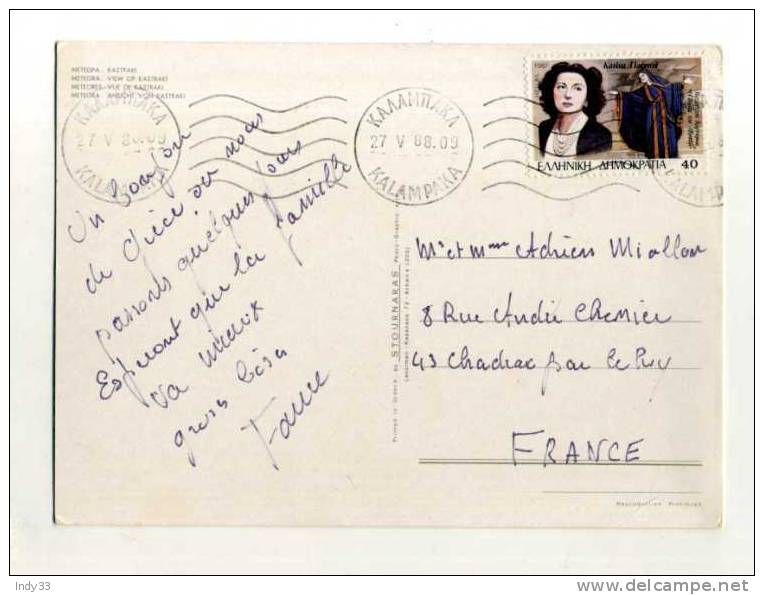 ΜΕΤΕΩΡΑ. ΚΑΣΤΡΑΚΙ
METEORA. VIEW OF KASTRAKI
METEORES. VUE DE KASTRAKI
METEORA. ANSICHT VON KASTRAKI
ΚΑΛΑΜΠΑΚΑ
27 V 88.09
KALAMPAKA
ΚΑΛΑΜΠΑΚΑ
27 V 88.09
KALAMPAKA
1987
ΕΛΛΗΝΙΚΗ ΔΗΜΟΚΡΑΤΙΑ 40
Un bonjour
de Grèce où nous
passons quelques jours
Espérant que la famille
va mieux
gros bisou
Printed in Greece by STOURNARAS
Mr et Mme Adrien Miallon
8 Rue André Chemier
43 Chadrac par le Puy
FRANCE
Indy33